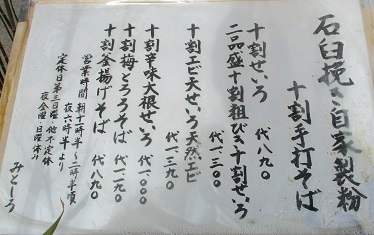 石臼挽き自家製粉
十割手打そば
十割せいろ 代八九〇
二品盛十割粗びき十割せいろ 代一三〇〇
十割エビ天せいろ天然エビ 代一三九〇
十割辛味大根せいろ 代一〇〇〇
十割梅とろろそば 代一一九〇
十割釜揚げそば 代八九〇
営業時間 朝十一時半〜二時半頃
夜六時半より
定休日第三日曜・他不定休
夜金曜・日曜休み
みとしろ